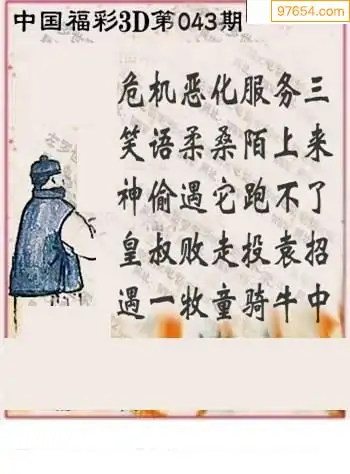 中国福彩3D第043期
97654.com
危机恶化服务三
笑语柔桑陌上来
神偷遇它跑不了
皇叔败走投袁招
遇一牧童骑牛中